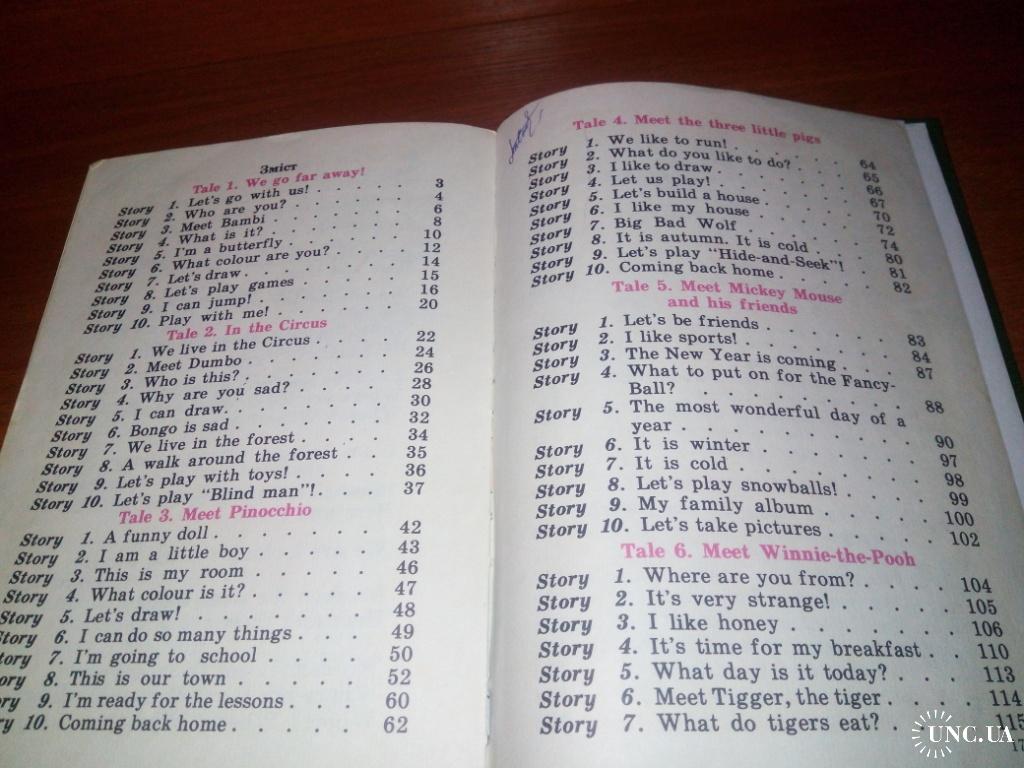 Зміст
Tale 1. We go far away!
Story 1. Let's go with us! . . . . . . 3
Story 2. Who are you? . . . . . . 4
Story 3. Meet Bambi . . . . . . 6
Story 4. What is it? . . . . . . 8
Story 5. I'm a butterfly . . . . . . 10
Story 6. What colour are you? . . . . . . 12
Story 7. Let's draw . . . . . . 14
Story 8. Let's play games . . . . . . 15
Story 9. I can jump! . . . . . . 16
Story 10. Play with me! . . . . . . 20
Tale 2. In the Circus
Story 1. We live in the Circus . . . . . 22
Story 2. Meet Dumbo . . . . . . 24
Story 3. Who is this? . . . . . . 26
Story 4. Why are you sad? . . . . . . 28
Story 5. I can draw. . . . . . . 30
Story 6. Bongo is sad . . . . . . 32
Story 7. We live in the forest . . . . . 34
Story 8. A walk around the forest . . . 35
Story 9. Let's play with toys! . . . . . 36
Story 10. Let's play "Blind man"! . . . 37
Tale 3. Meet Pinocchio
Story 1. A funny doll . . . . . . 42
Story 2. I am a little boy . . . . . . 43
Story 3. This is my room . . . . . 46
Story 4. What colour is it? . . . . . . 47
Story 5. Let's draw! . . . . . . 48
Story 6. I can do so many things . . . . 49
tory 7. I'm going to school . . . . . 50
ory 8. This is our town . . . . . 52
ry 9. I'm ready for the lessons . . . . 60
y 10. Coming back home . . . . . . 62
Tale 4. Meet the three little pigs
Story 1. We like to run! . . . . . . 64
Story 2. What do you like to do? . . . . 65
Story 3. I like to draw . . . . . . 66
Story 4. Let us play! . . . . . . 67
Story 5. Let's build a house . . . . . . 70
Story 6. I like my house . . . . . . 72
Story 7. Big Bad Wolf . . . . . . 74
Story 8. It is autumn. It is cold . . . . 80
Story 9. Let's play "Hide-and-Seek"! . . 81
Story 10. Coming back home . . . . . . 82
Tale 5. Meet Mickey Mouse
and his friends
Story 1. Let's be friends . . . . . . 83
Story 2. I like sports! . . . . . . 84
Story 3. The New Year is coming . . . . 87
Story 4. What to put on for the Fancy-
Ball? . . . . . . . . 88
Story 5. The most wonderful day of a
year . . . . . . . . 90
Story 6. It is winter . . . . . . 97
Story 7. It is cold . . . . . . 98
Story 8. Let's play snowballs! . . . . . 99
Story 9. My family album . . . . . 100
Story 10. Let's take pictures . . . . . 102
Tale 6. Meet Winnie-the-Pooh
Story 1. Where are you from? . . . . 104
Story 2. It's very strange! . . . . . 105
Story 3. I like honey . . . . . . 106
Story 4. It's time for my breakfast . . 110
Story 5. What day is it today? . . . . 113
Story 6. Meet Tigger, the tiger . . . . 114
Story 7. What do tigers eat? . . . . 115
UNC.UA